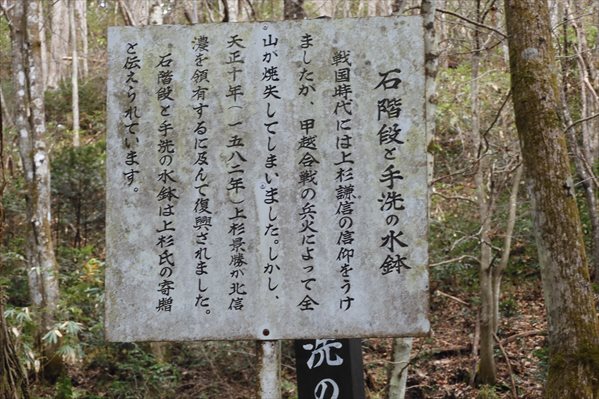 石階段と手洗の水鉢
戦国時代には上杉謙信の信仰をうけ
ましたが、甲越合戦の兵火によって全
山が焼失してしまいました。しかし、
天正十年(一五八二年)上杉景勝が北信
濃を領有するに及んで復興されました。
石階段と手洗の水鉢は上杉氏の寄贈
と伝えられています。
洗の